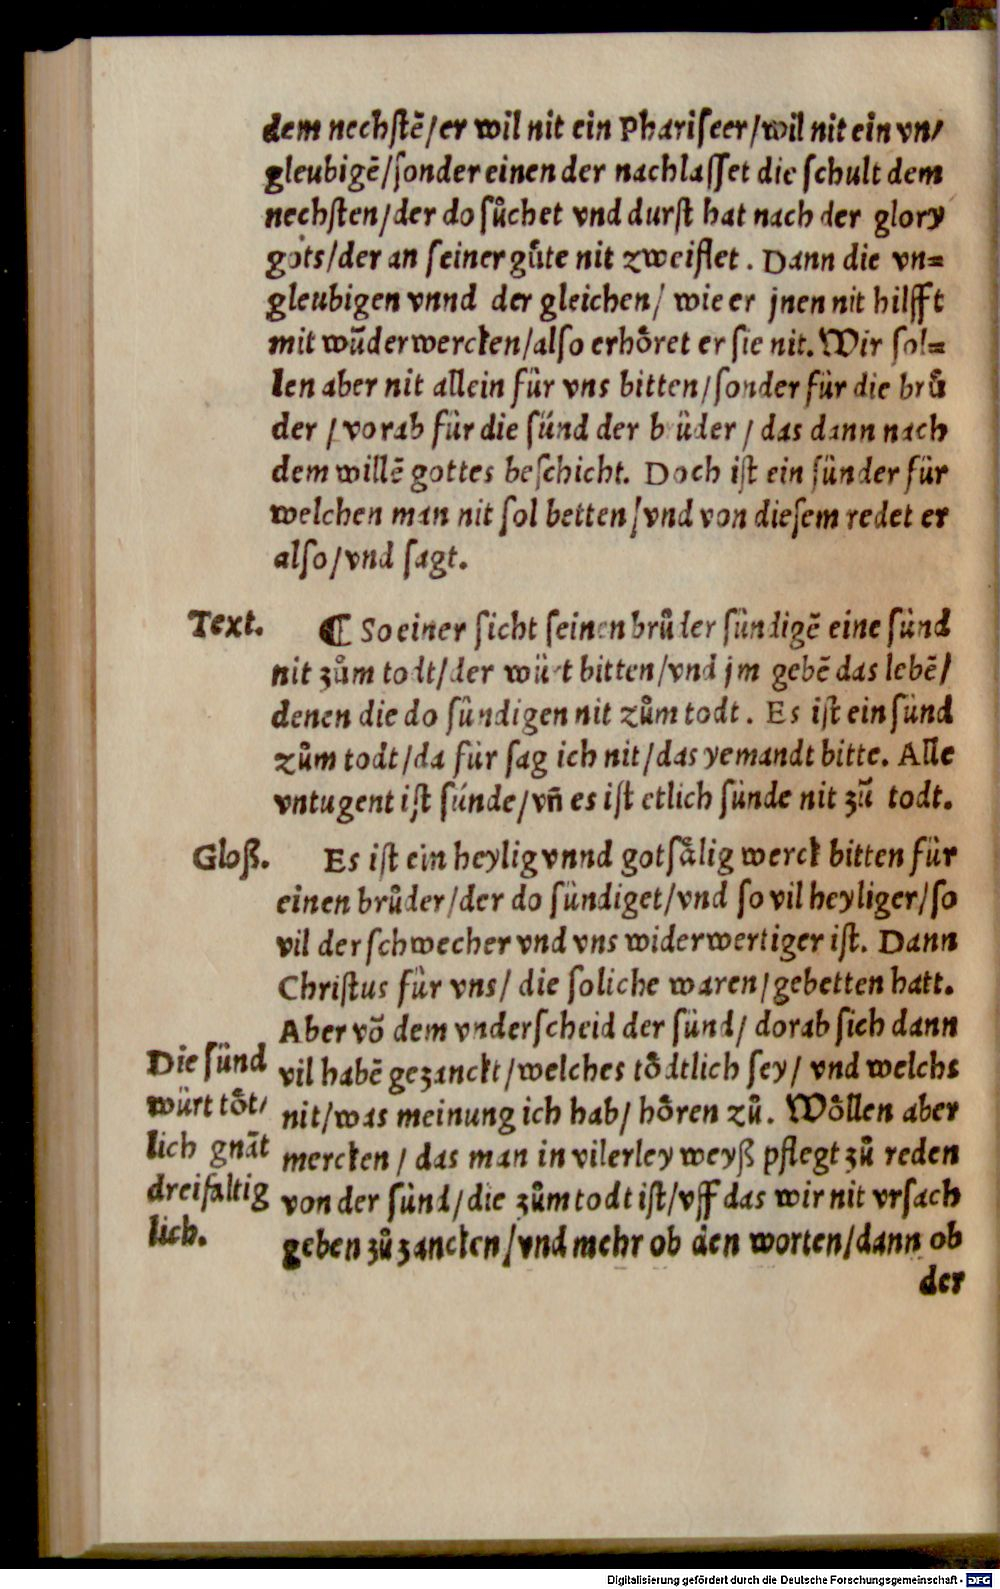 dem nechstē/er wil nit ein Phariseer/wil nit ein vn/
gleubigē/sonder einen der nachlasset die schult dem
nechsten/der do sůchet vnd durst hat nach der glory
gots/der an seiner gůte nit zweiflet. Dann die vn=
gleubigen vnnd der gleichen/ wie er jnen nit hilfft
mit wūderwercken/also erhöret er sie nit. Wir sol=
len aber nit allein für vns bitten/sonder für die brů
der / vorab für die sünd der b üder / das dann nach
dem willē gottes beschicht. Doch ist ein sünder für
welchen man nit sol betten/vnd von diesem redet er
also/vnd sagt.
Text.
¶ So einer sicht seinen brůder sündigē eine sünd
nit zům todt/der würt bitten/vnd jm gebē das lebē/
denen die do sündigen nit zům todt. Es ist ein sünd
zům todt/da für sag ich nit/das yemandt bitte. Alle
vntugent ist sünde/vn̄ es ist etlich sünde nit zū todt.
Gloß.
Es ist ein heylig vnnd gotsälig werck bitten für
einen brůder/der do sündiget/vnd so vil heyliger/so
vil der schwecher vnd vns widerwertiger ist. Dann
Christus für vns/ die soliche waren/gebetten hatt.
Aber vō dem vnderscheid der sünd/ dorab sich dann
vil habē gezanckt/welches tödtlich sey/ vnd welchs
nit/was meinung ich hab/ hören zů. Wöllen aber
mercken / das man in vilerley weyß pflegt zů reden
von der sünd/die zům todt ist/vff das wir nit vrsach
geben zů zancken/vnd mehr ob den worten/dann ob
der
Die sünd
würt töt/
lich gnāt
dreifaltig
lich.
Digitalisierung gefördert durch die Deutsche Forschungsgemeinschaft - DFG